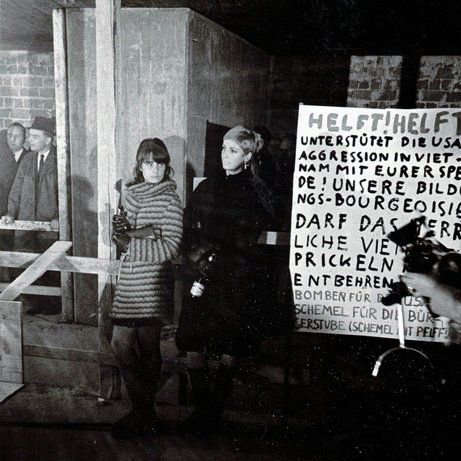 HELFT! HELFT
UNTERSTÜTZT DIE USA
AGGRESSION IN VIET-
NAM MIT EURER SPE
DE! UNSERE BILDU
NGS-BOURGEOISIE
DARF DAS HERR
LICHE VIE
PRICKELN
ENTBEHREN
BOMBEN FÜR D US
SCHEMEL FÜR DIE BÜR
GERSTUBE (SCHEMEL MIT PFIFF)